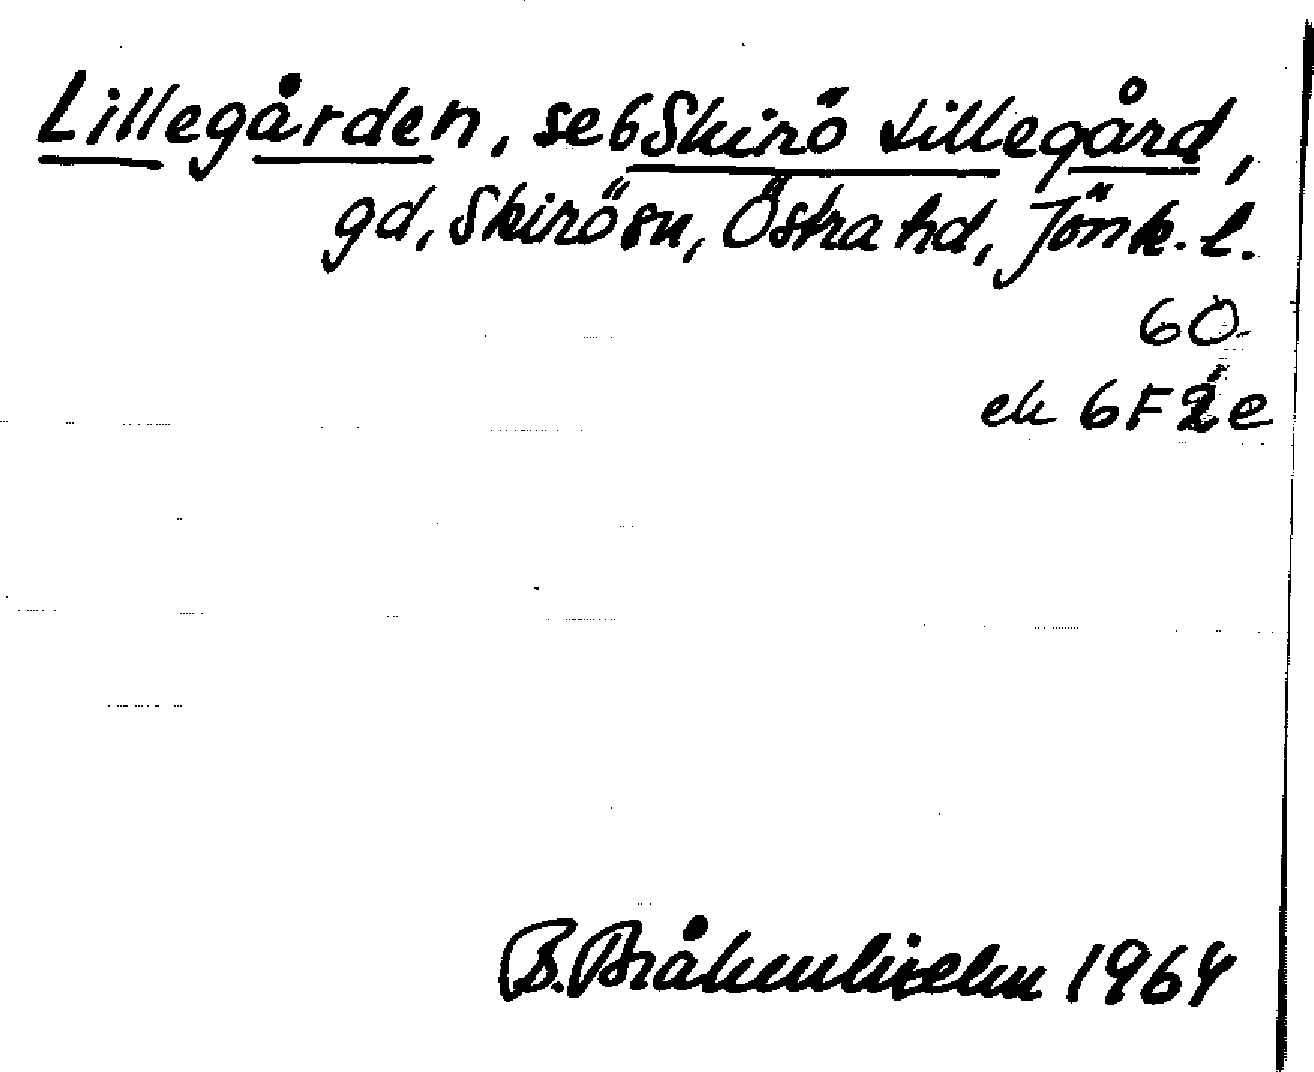 Lillegården, se 6 Skirö Lillegård,
gd, Skirö sn, Östra hd, Jönk. l.
60
ek 6F2e
B. Bråkenhielm 1964